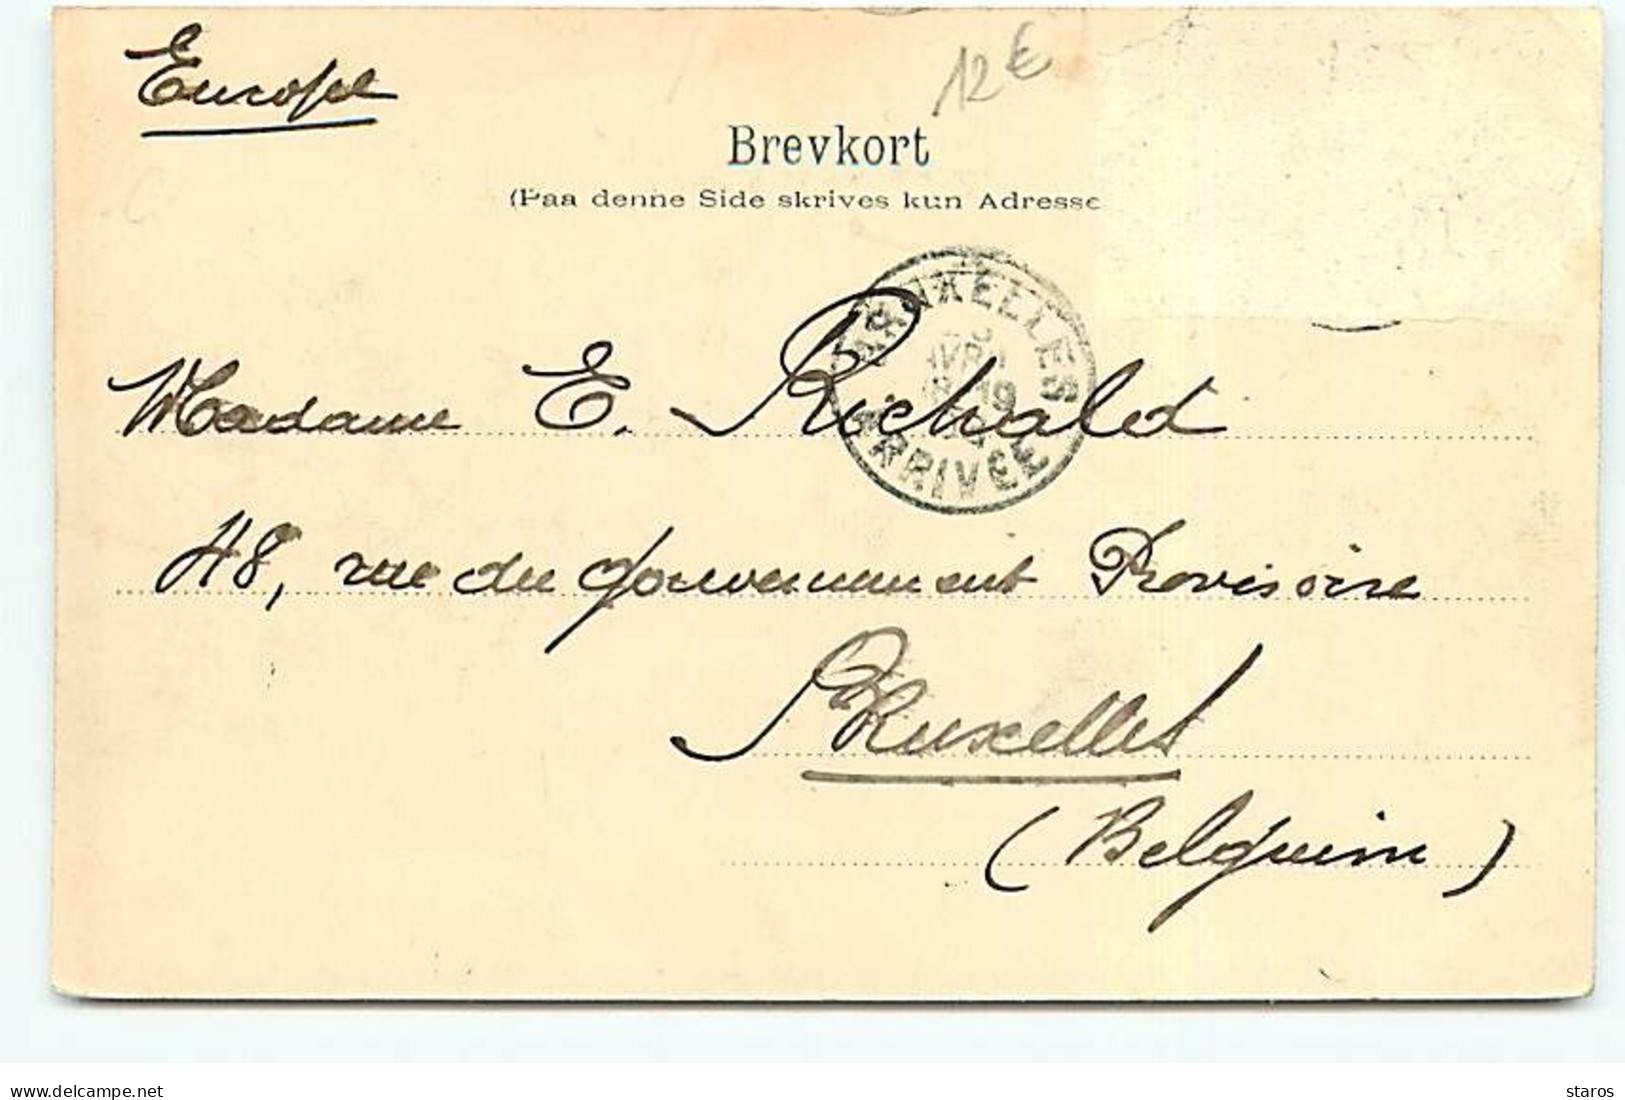 Europe
12€
Brevkort
(Paa denne Side skrives kun Adresse
BRUXELLES
AVRIL
19
ARRIVÉE
Madame E. Richald
48, rue du Gouvernement Provisoire
Bruxelles
(Belgium)
www.delcampe.net
staros